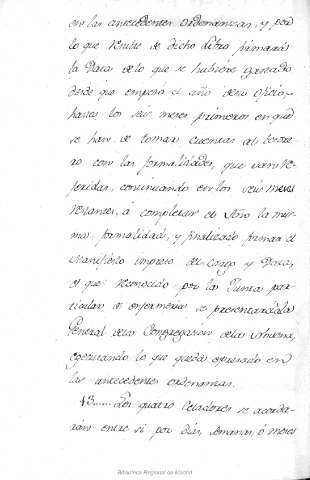 en las antecedentes ordenanzas, y por
lo que resulte de dicho Libro formará
la Data de lo que se hubiere gastado
desde que empezó el año de su oficio,
hasta los seis meses primeros en que
se han de tomar cuentas al Tesore
ro con las formalidades, que van re-
feridas, continuando en los seis meses
restantes, à completar el Año la mis-
ma formalidad, y finalizado formar el
Manifiesto impreso del cargo y Data,
el que reconocido por la Junta par-
ticular de enfermeria se presentará à la
General de la Congregacion de la Nuestra,
egecutando lo que queda expresado en
las antecedentes ordenanzas.
43..... Los quatro Celadores se acorda-
rán entre si por dias, semanas, ò meses
Biblioteca Regional de Madrid